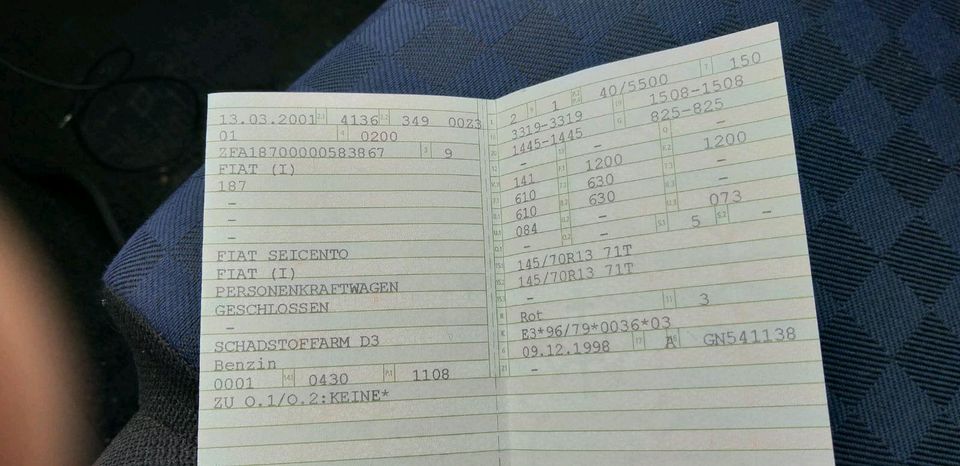 13.03.2001 2.1 4136 2.2 349 00Z3
01 4 0200
ZFA18700000583867 3 9
FIAT (I)
187
-
-
-
FIAT SEICENTO
FIAT (I)
PERSONENKRAFTWAGEN
GESCHLOSSEN
-
SCHADSTOFFARM D3
Benzin
0001 0430 P.1 1108
ZU O.1/O.2:KEINE*
2 9 1 40/5500 T 150
3319-3319 1508-1508
1445-1445 G 825-825
- - -
141 1200 1200
610 630 -
610 630 -
084 - 073
- - S.1 5 S.2 -
145/70R13 71T
145/70R13 71T
-
Rot 11 3
E3*96/79*0036*03
09.12.1998 17 A GN541138
-